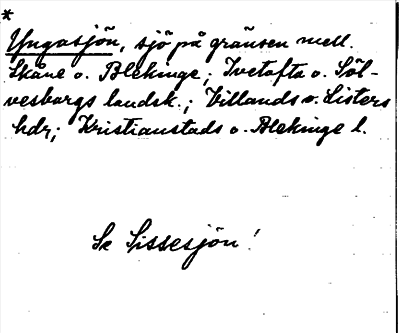 *
Yngasjön, sjö på gränsen mell.
Skåne o. Blekinge; Ivetofta o. Söl-
vesborgs landsk.; Villands o. Listers
hdr; Kristianstads o. Blekinge l.
Se Sissesjön!